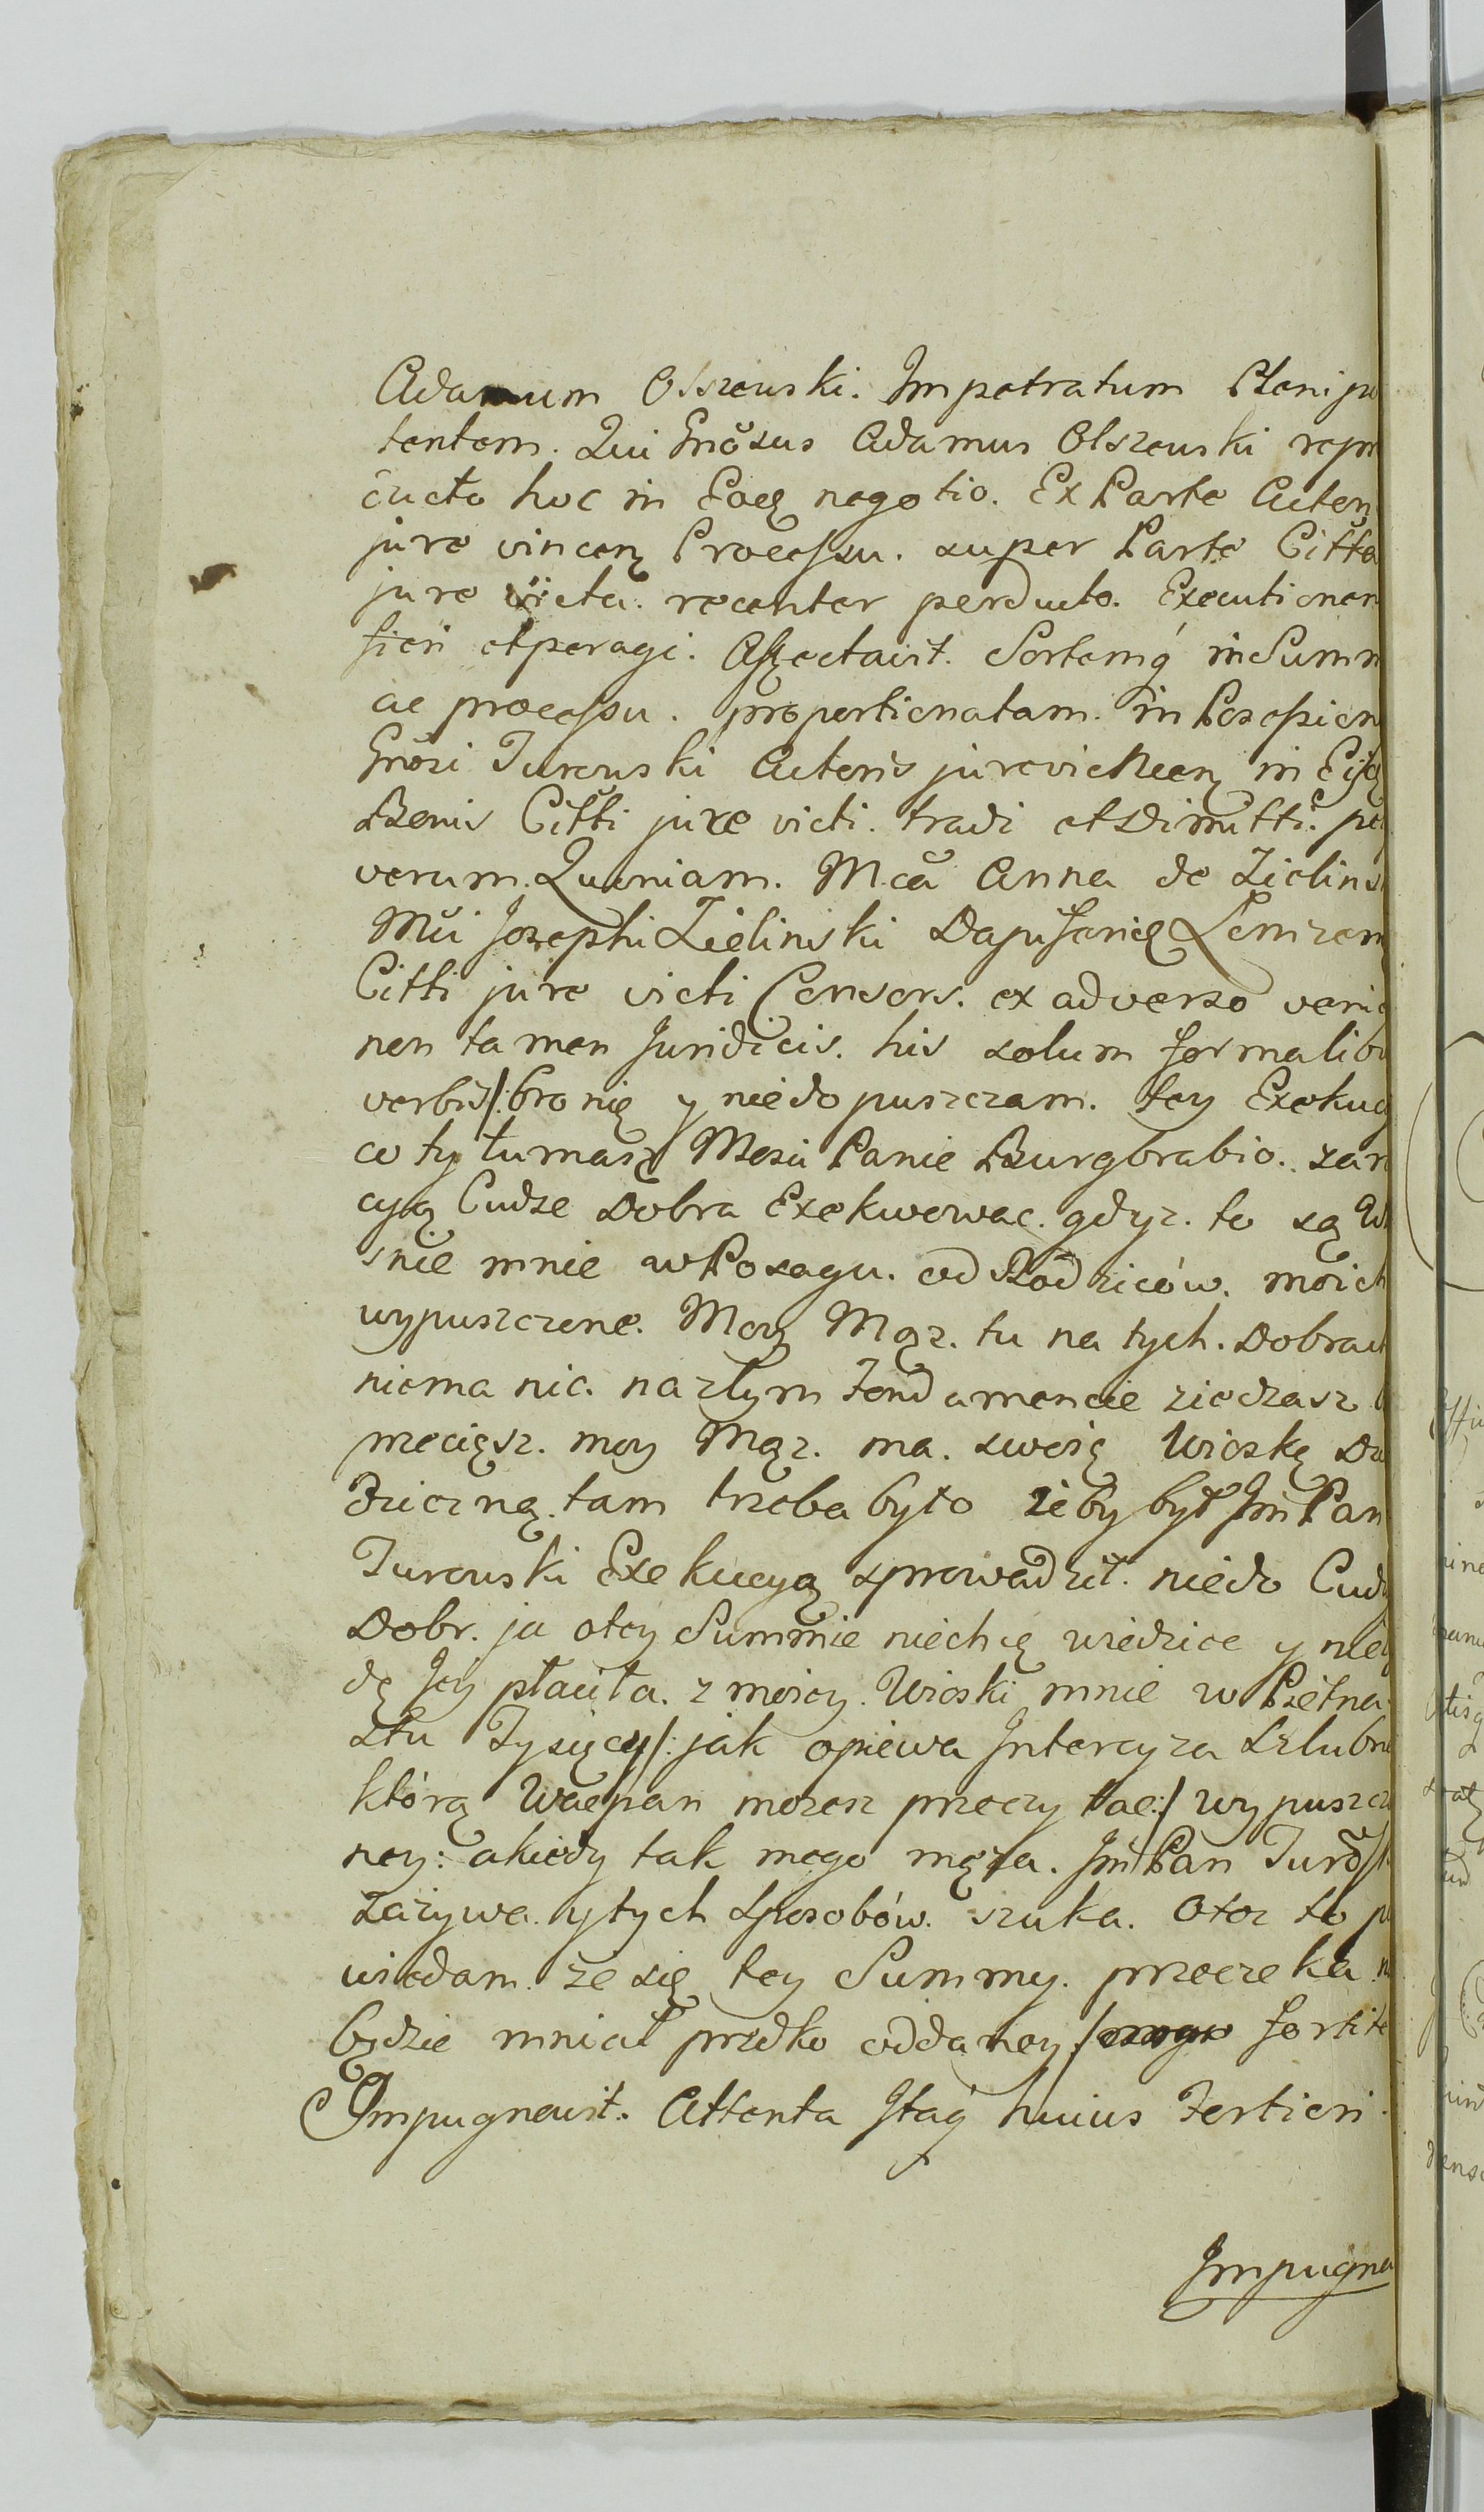 Adamum Olszewski. Impetratum Plenipo
tentem. Qui Gnősus Adamus Olszewski repro
ducto hoc in Eoq negotio. Ex Parte Actor
jure vincen Processu. super Parte Citta
jure victa. recenter perducto. Executionem
fieri et peragi. Affectavit. Sortemq́ in Summ
ac processu. proportionatam. in Possessien
Gnősi Turowski Actoris jurevincen in Eijsq
Bonis Citti jure victi. tradi et Dimitti. pe
verum. Quoniam. M.ca Anna de Zielins
Mci Josephi Zielinski Dapiferid Lomzen
Citti jure victi Consors. ex adverso venie
non tamen Juridicis. his solum formalibu
verbis /: bronię y niedopuszczam. tey Exekuc
co ty tu masz Mosci Panie Burgrabio. zaro
cyią Cudze Dobra Exekwowac. gdyz. to są Wł
snie mnie w Posagu. od Rodziców. moich
wypuszczone. Moy Mąz. tu na tych. Dobrach
niema nic. na złym Fondamencie ziedzasz
przeciesz. moy Mąz. ma. swoię Wioskę Dzie
dziczną. tam trzeba było żeby był Jm̃ Pan
Turowski Exekucyą sprowadził. niedo Cudz
Dobr. ja otey Summie niechcę wiedziec y nieb
dę Jey płaciła. z moiey. Wioski mnie w Piętna
stu Tysięcy /: jak opiewa Intercyza Szlubna
którą Wacpan mozesz przeczytac :/ wypuszczo
ney: akiedy tak mego męza. Jm̃ Pan Turo/ki
zażywa. y tych sposobów. szuka. Otoz to po
wiadam. że się tey Summy. przeczeka n
będzie mniał prędko oddaney / fortite
Impugnavit. Attenta Itaq́ huius Fortiori.
Impugna